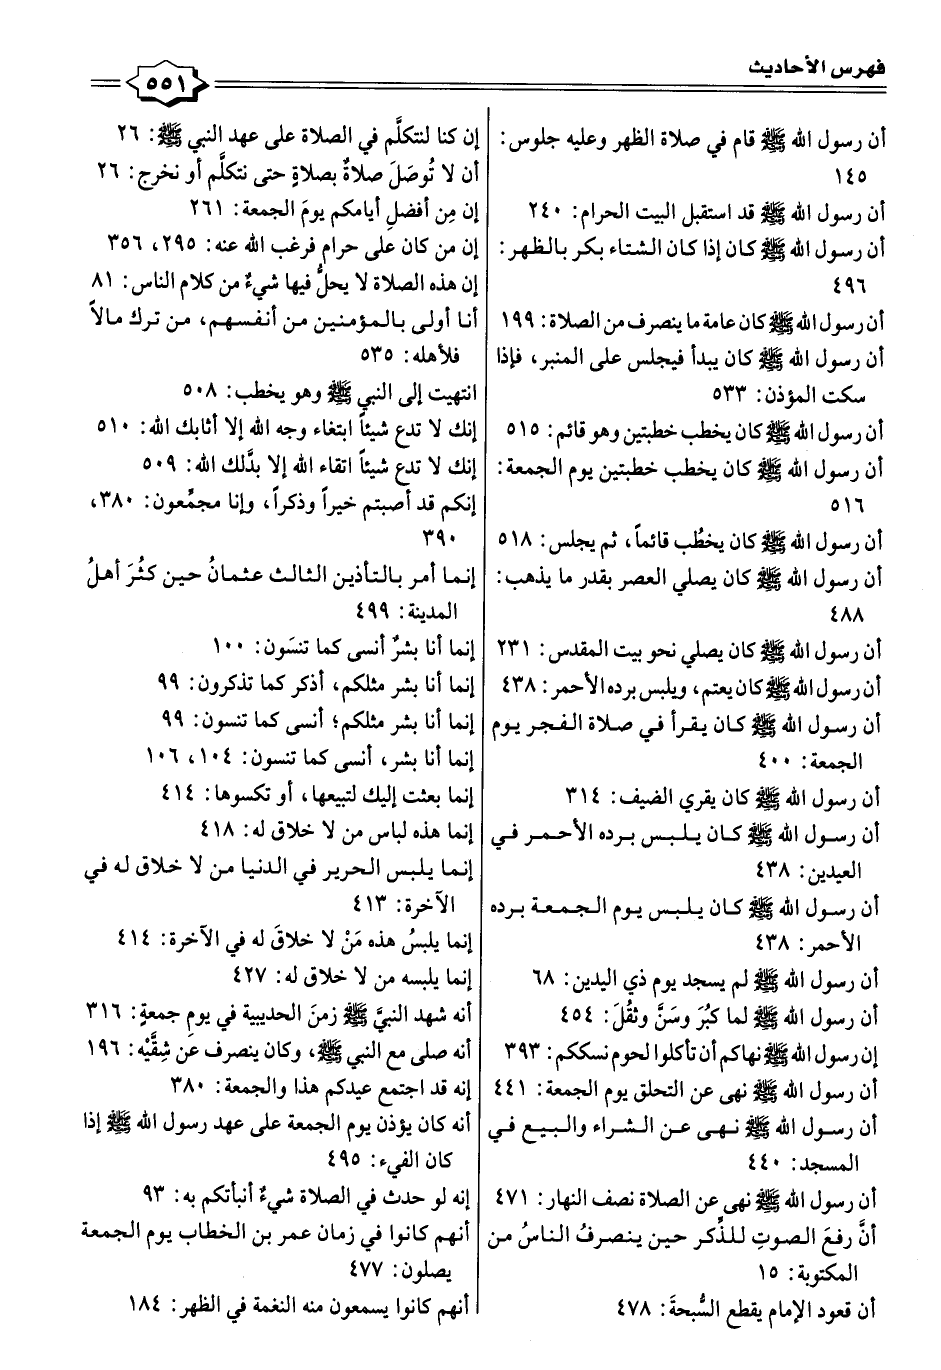 فهرس الأحاديث
٥٥١
أن رسول الله ﷺ قام في صلاة الظهر وعليه جلوس:
١٤٥
أن رسول الله ﷺ قد استقبل البيت الحرام: ٢٤٠
أن رسول الله ﷺ كان إذا كان الشتاء بكر بالظهر:
٤٩٦
أن رسول الله ﷺ كان عامة ما ينصرف من الصلاة: ١٩٩
أن رسول الله ﷺ كان يبدأ فيجلس على المنبر، فإذا
سكت المؤذن: ٥٣٣
أن رسول الله ﷺ كان يخطب خطبتين وهو قائم: ٥١٥
أن رسول الله ﷺ كان يخطب خطبتين يوم الجمعة:
٥١٦
أن رسول الله ﷺ كان يخطُب قائماً، ثم يجلس: ٥١٨
أن رسول الله ﷺ كان يصلي العصر بقدر ما يذهب:
٤٨٨
أن رسول الله ﷺ كان يصلي نحو بيت المقدس: ٢٣١
أن رسول الله ﷺ كان يعتم، ويلبس برده الأحمر: ٤٣٨
أن رسول الله ﷺ كان يقرأ في صلاة الفجر يوم
الجمعة: ٤٠٠
أن رسول الله ﷺ كان يقري الضيف: ٣١٤
أن رسول الله ﷺ كان يلبس برده الأحمر في
العيدين: ٤٣٨
أن رسول الله ﷺ كان يلبس يوم الجمعة برده
الأحمر: ٤٣٨
أن رسول الله ﷺ لم يسجد يوم ذي اليدين: ٦٨
أن رسول الله ﷺ لما كبُرَ وسَنَّ وثقُلَ: ٤٥٤
إن رسول الله ﷺ نهاكم أن تأكلوا لحوم نسككم: ٣٩٣
أن رسول الله ﷺ نهى عن التحلق يوم الجمعة: ٤٤١
أن رسول الله ﷺ نهى عن الشراء والبيع في
المسجد: ٤٤٠
أن رسول الله ﷺ نهى عن الصلاة نصف النهار: ٤٧١
أنَّ رفعَ الصوتِ للذِّكر حين ينصرفُ الناسُ من
المكتوبة: ١٥
أن قعود الإمام يقطع السُّبحةَ: ٤٧٨
إن كنا لنتكلَّم في الصلاة على عهد النبي ﷺ: ٢٦
أن لا تُوصَلَ صلاةٌ بصلاةٍ حتى نتكلَّم أو نخرج: ٢٦
إن مِن أفضلِ أيامكم يومَ الجمعة: ٢٦١
إن من كان على حرام فرغب الله عنه: ٢٩٥، ٣٥٦
إن هذه الصلاة لا يحلُّ فيها شيءٌ من كلام الناس: ٨١
أنا أولى بالمؤمنين من أنفسهم، من ترك مالاً
فلأهله: ٥٣٥
انتهيت إلى النبي ﷺ وهو يخطب: ٥٠٨
إنك لا تدع شيئاً ابتغاء وجه الله إلا أثابك الله: ٥١٠
إنك لا تدع شيئاً اتقاء الله إلا بدَّلك الله: ٥٠٩
إنكم قد أصبتم خيراً وذكراً، وإنا مجمِّعون: ٣٨٠،
٣٩٠
إنما أمر بالتأذين الثالث عثمانُ حين كثُرَ أهلُ
المدينة: ٤٩٩
إنما أنا بشرٌ أنسى كما تنسَون: ١٠٠
إنما أنا بشر مثلكم، أذكر كما تذكرون: ٩٩
إنما أنا بشر مثلكم؛ أنسى كما تنسون: ٩٩
إنما أنا بشر، أنسى كما تنسون: ١٠٤، ١٠٦
إنما بعثت إليك لتبيعها، أو تكسوها: ٤١٤
إنما هذه لباس من لا خلاق له: ٤١٨
إنما يلبس الحرير في الدنيا من لا خلاق له في
الآخرة: ٤١٣
إنما يلبسُ هذه مَنْ لا خلاقَ له في الآخرة: ٤١٤
إنما يلبسه من لا خلاق له: ٤٢٧
أنه شهد النبيَّ ﷺ زمنَ الحديبية في يومِ جمعةٍ: ٣١٦
أنه صلى مع النبي ﷺ، وكان ينصرف عن شِقَّيْه: ١٩٦
إنه قد اجتمع عيدكم هذا والجمعة: ٣٨٠
أنه كان يؤذن يوم الجمعة على عهد رسول الله ﷺ إذا
كان الفيء: ٤٩٥
إنه لو حدث في الصلاة شيءٌ أنبأتكم به: ٩٣
أنهم كانوا في زمان عمر بن الخطاب يوم الجمعة
يصلون: ٤٧٧
أنهم كانوا يسمعون منه النغمة في الظهر: ١٨٤